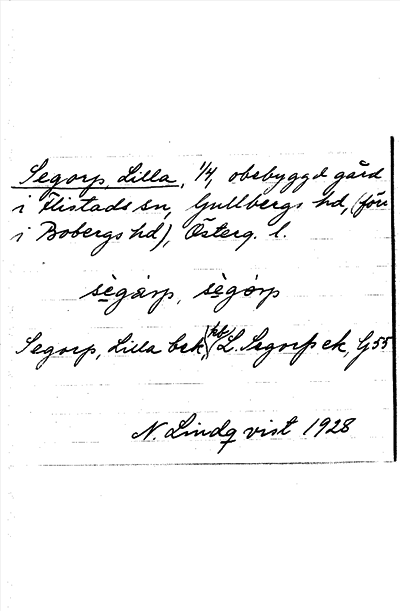 Segorp, Lilla, 1/4, obebyggd gård
i Flistads sn, Gullbergs hd, (förr
i Bobergs hd), Österg. l.
sègårp, sègórp
Segorp, Lilla bek, L. Segorp ek, G 55
N. Lindqvist 1928